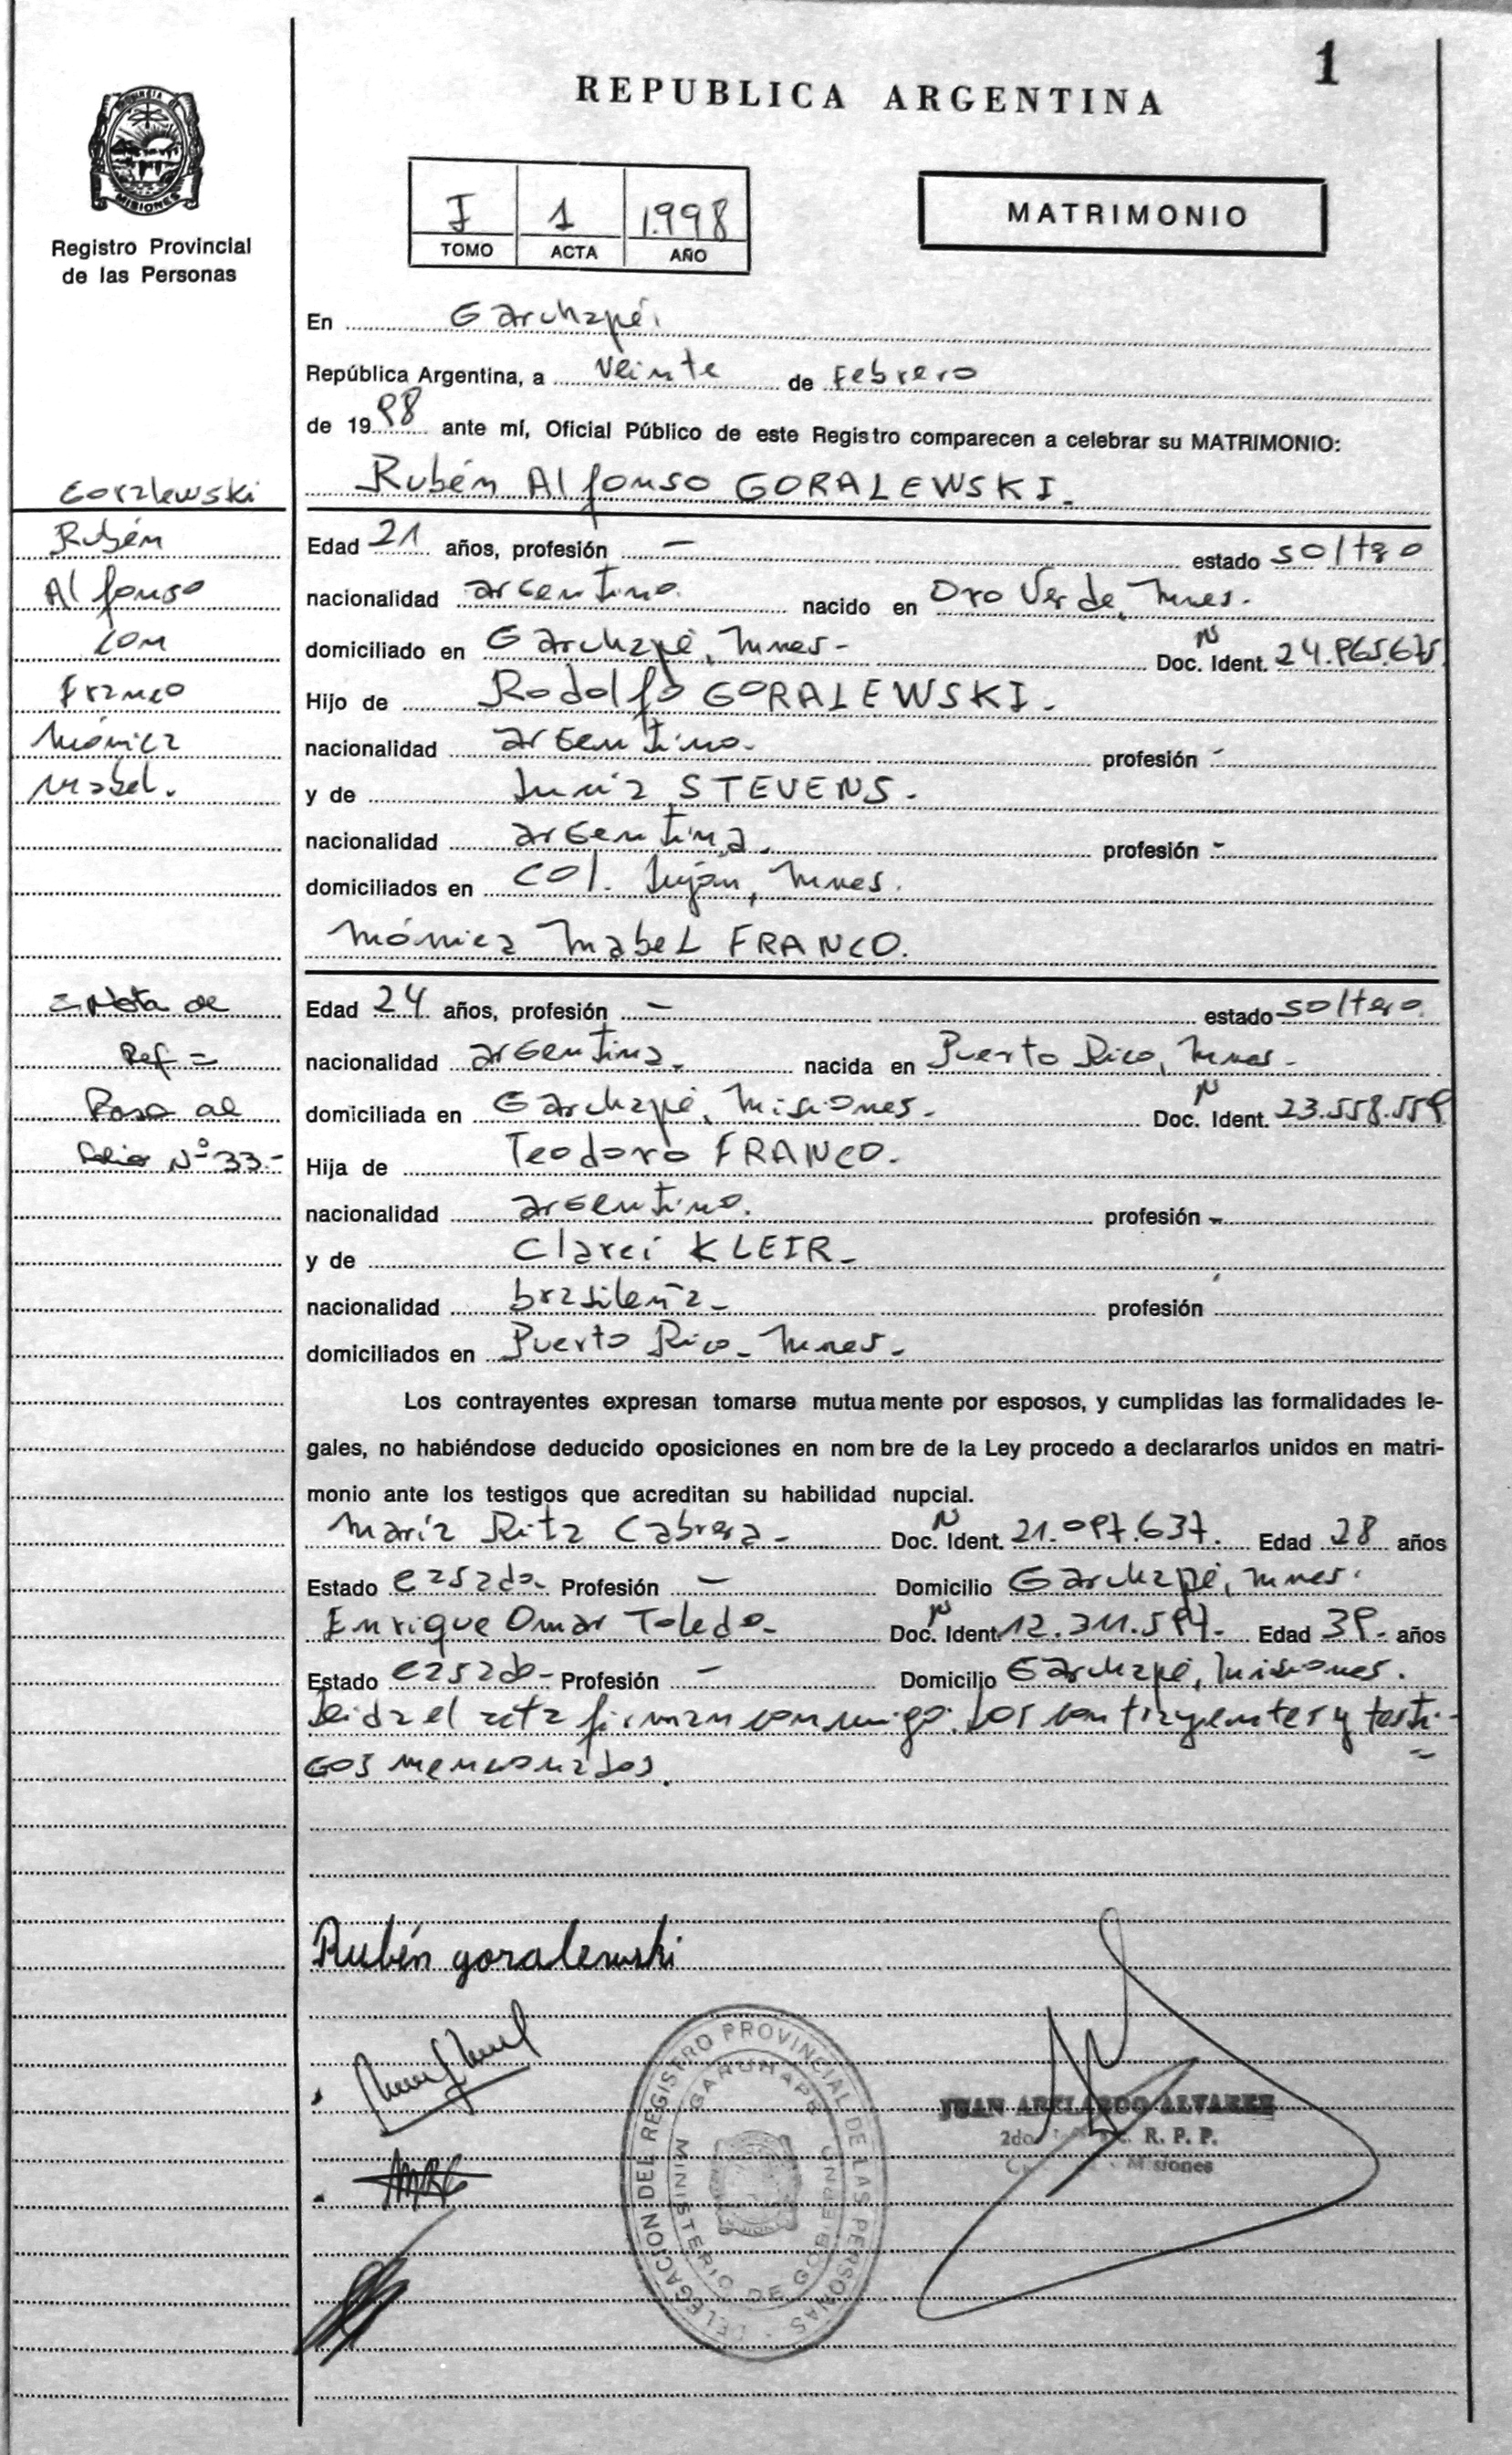 1
REPUBLICA ARGENTINA
PROVINCIA DE
MISIONES
Registro Provincial
de las Personas
I 1 1.998
TOMO ACTA AÑO
MATRIMONIO
En Garuhapé.
República Argentina, a veinte de Febrero
de 1998 ante mí, Oficial Público de este Registro comparecen a celebrar su MATRIMONIO:
Rubén Alfonso GORALEWSKI.
Goralewski
Rubén
Alfonso
con
Franco
Mónica
Mabel.
Edad 21 años, profesión — estado soltero
nacionalidad argentino. nacido en Oro Verde, Mnes.
domiciliado en Garuhapé, Mnes- Doc. N Ident. 24.965.675
Hijo de Rodolfo GORALEWSKI.
nacionalidad argentino. profesión -
y de STEVENS.
nacionalidad argentina. profesión -
domiciliados en Col. Luján, Mnes.
Mónica Mabel FRANCO.
= Nota de
Ref =
Pasa al
Folio N° 33-
Edad 24 años, profesión — estado soltera.
nacionalidad argentina. nacida en Puerto Rico, Mnes-
domiciliada en Garuhapé, Misiones. Doc. N Ident. 23.558.559
Hija de Teodoro FRANCO.
nacionalidad argentino. profesión -
y de Clarei KLEIR-
nacionalidad brasileña- profesión
domiciliados en Puerto Rico- Mnes-
Los contrayentes expresan tomarse mutuamente por esposos, y cumplidas las formalidades le-
gales, no habiéndose deducido oposiciones en nombre de la Ley procedo a declararlos unidos en matri-
monio ante los testigos que acreditan su habilidad nupcial.
María Rita Cabrera- Doc. N Ident. 21.097.637. Edad 28 años
Estado casada Profesión — Domicilio Garuhapé, Mnes.
Enrique Omar Toledo- Doc. N Ident. 12.311.597- Edad 39- años
Estado casado- Profesión — Domicilio Garuhapé, Misiones.
Leida el acta firman conmigo los contrayentes y testi-
gos mencionados.
Rubén goralewski
DELEGACION DEL REGISTRO PROVINCIAL DE LAS PERSONAS
GARUHAPE
MINISTERIO DE GOBIERNO
JUAN ABELARDO ALVAREZ
2do. R. P. P.
Misiones